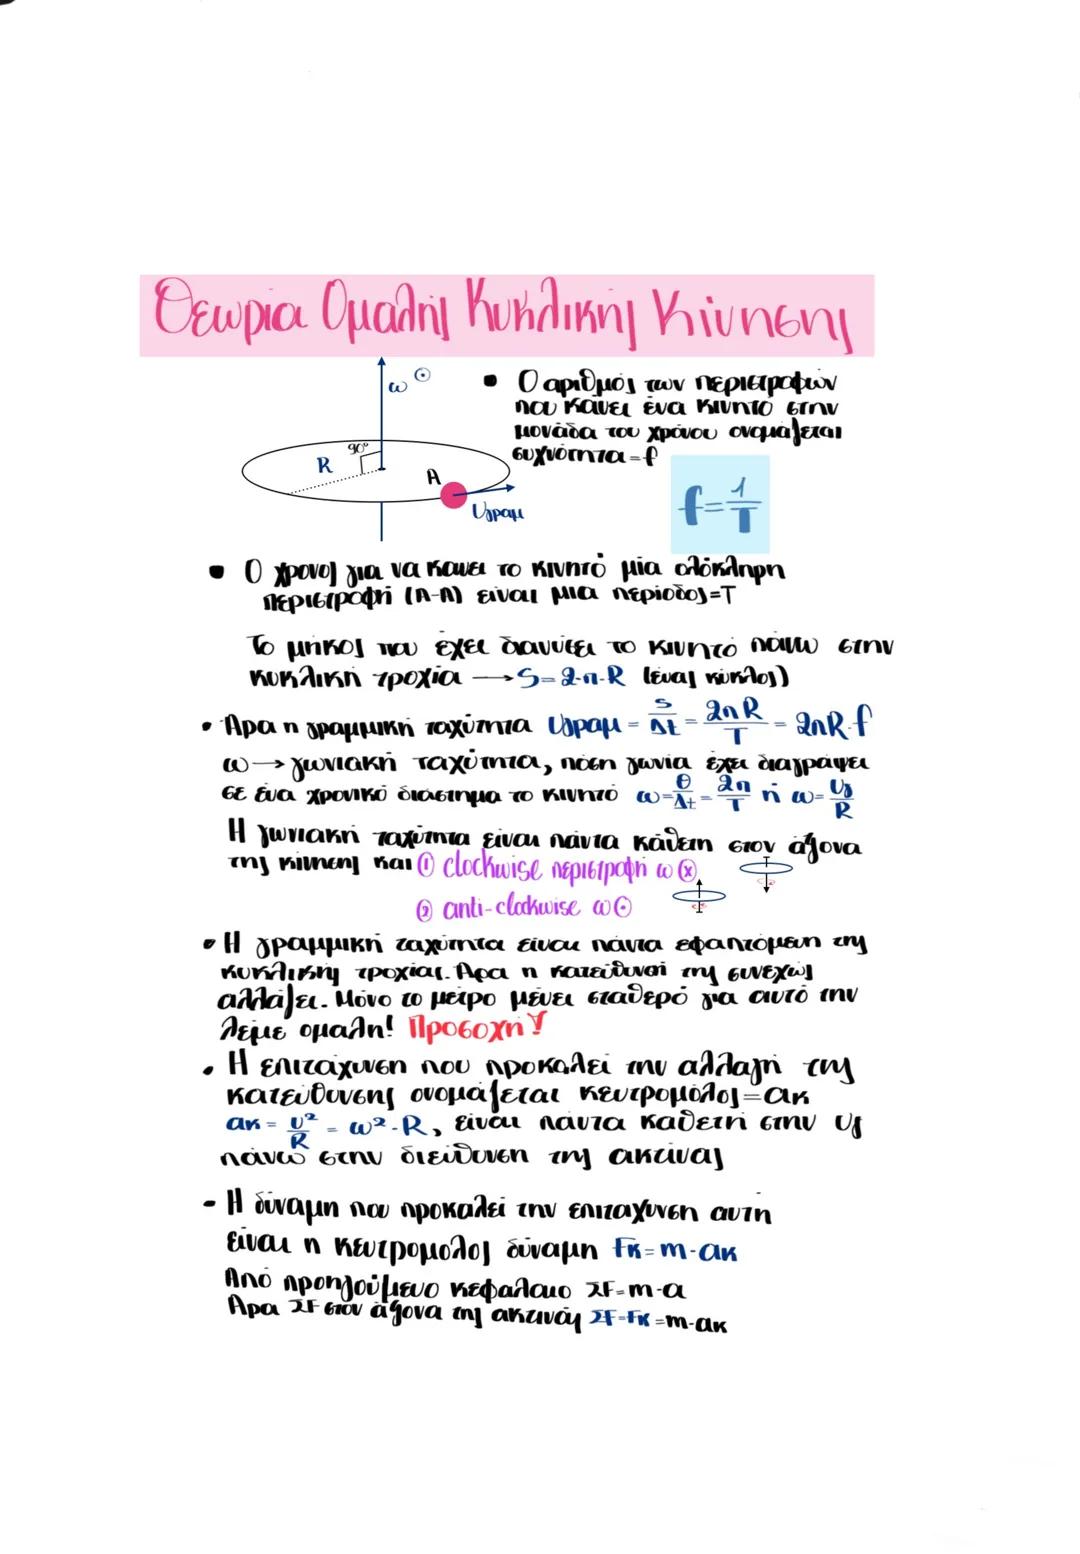 Θεωρία Ομαλής Κυκλικής Κίνησης
ω
R
90°
A
Uγραμ
• Ο αριθμός των περιστροφών
που κάνει ένα κινητό στην
μονάδα του χρόνου ονομάζεται
συχνότητα = f
f = 1/T
• Ο χρονος για να κάνει το κινητό μία ολόκληρη
περιστροφή (A-A) είναι μια περίοδος = T
Το μήκος που έχει διανύσει το κινητό πάνω στην
κυκλική τροχία → S = 2·π·R (ένας κύκλος)
• Άρα η γραμμική ταχύτητα Uγραμ = s/Δt = 2πR/T = 2πR·f
ω → γωνιακή ταχύτητα, πόση γωνία έχει διαγράψει
σε ένα χρονικό διάστημα το κινητό ω = θ/Δt = 2π/T ή ω = Uγ/R
Η γωνιακή ταχύτητα είναι πάντα κάθετη στον άξονα
της κίνησης και ① clockwise περιστροφή ω ⊗
② anti-clockwise ω ⊙
• Η γραμμική ταχύτητα είναι πάντα εφαπτόμενη της
κυκλικής τροχίας. Άρα η κατεύθυνσή της συνεχώς
αλλάζει. Μόνο το μέτρο μένει σταθερό για αυτό την
λέμε ομαλη! Προσοχή!
• Η επιτάχυνση που προκαλεί την αλλαγή της
κατεύθυνσης ονομάζεται κεντρομόλος = ακ
ακ = υ²/R = ω²·R, είναι πάντα κάθετη στην Uγ
πάνω στην διεύθυνση της ακτίνας
- Η δύναμη που προκαλεί την επιταχυνση αυτή
είναι η κεντρομολος δύναμη Fκ = m·ακ
Από προηγούμενο κεφαλαιο ΣF = m·α
Άρα ΣF στον άξονα της ακτινάς ΣF = Fκ = m·ακ